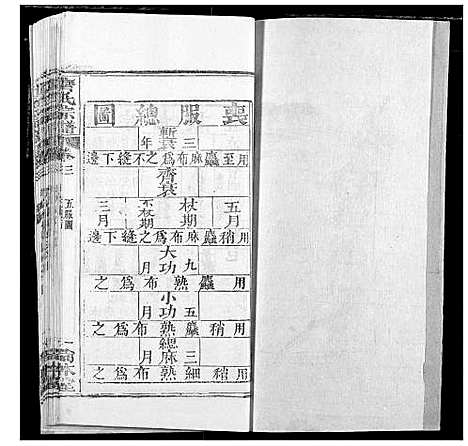 喪服總圖
斬衰
三年
用至麤麻布爲之不縫下邊
齊衰
五月
杖期
不杖期
三月
用稍麤麻布爲之縫下邊
大功
九月
用麤熟布爲之
小功
五月
用稍麤熟布爲之
緦麻
三月
用稍細熟布爲之
氏宗譜
卷三
五服圖
一